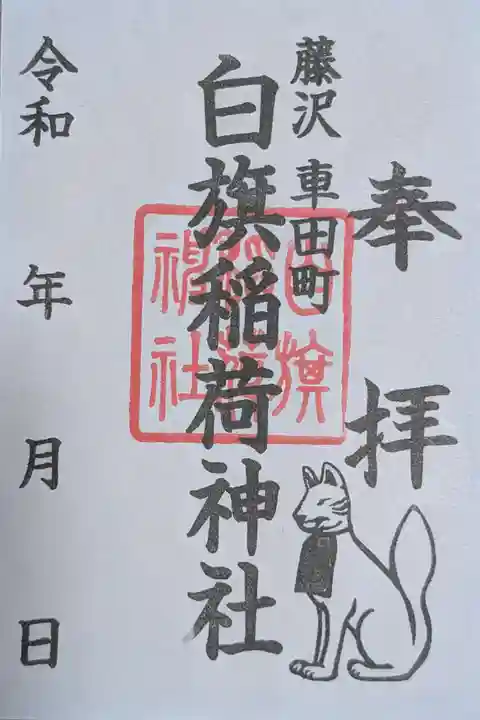 奉拝
藤沢 車田町
白旗稲荷神社
白旗
稲荷
神社
令和 年 月 日